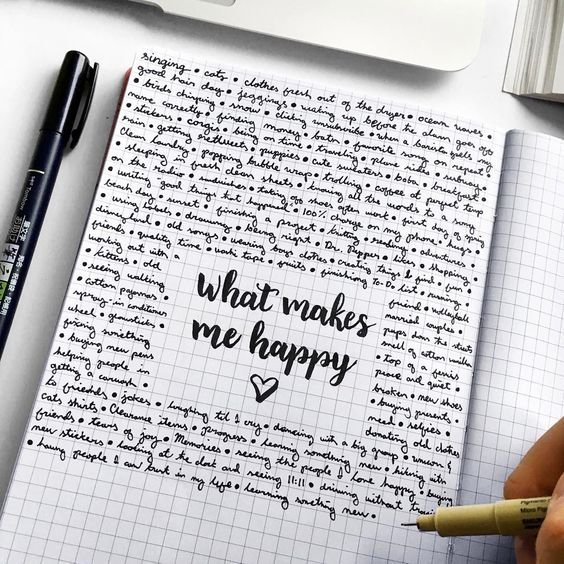 singing • cats • clothes fresh out of the dryer • ocean waves •
good hair day • jeggings • waking up before the alarm goes off
• birds chirping • snow • clicking unsubscribe • when a barista spells my
name correctly • finding money • bats • favorite song on repeat
• stickers • corgis • being on time • traveling • plane rides • subway
rain • getting retweets • puppies • cute sweaters • boba • breakfast •
clean laundry • popping bubble wrap • trolling • coffee at perfect temp
• sleeping in fresh clean sheets • knowing all the words to a song
on the radio • smoothies • taking off shoes after work • first day of spring
writing good thing that happened • 100% charge on my phone •
beach day • sunset • finishing a project • knitting • headbands •
using washi • drawing • being right • Dr. Pepper • • adventures •
disneyland • old songs • wearing boys clothes • creating things • good fun • shopping
friends • quality time • washi tape • fruits • finishing to Do list • nursing
working out with a friend • volleyball
• kittens • old married couples •
• seeing walking pups down the streets
• cotton pajamas • smell of cotton vanilla
spray in conditioner • top of a ferris
wheel • glowsticks • peace and quiet •
fixing something broken • new shoes
buying new pens • buying presents •
helping people in need • selfies •
getting a carwash • donating old clothes
to friends • jokes • laughing til I cry • dancing with a big group • unicorn &
cats shirts • Clearance items • progress • learning something new • hiking with
friends • tears of joy • Memories • seeing the people I love happy • buying
new stickers • looking at the clock and seeing 11:11 • driving without traffic
• having people I can trust in my life • learning something new •
what makes
me happy
Tombow